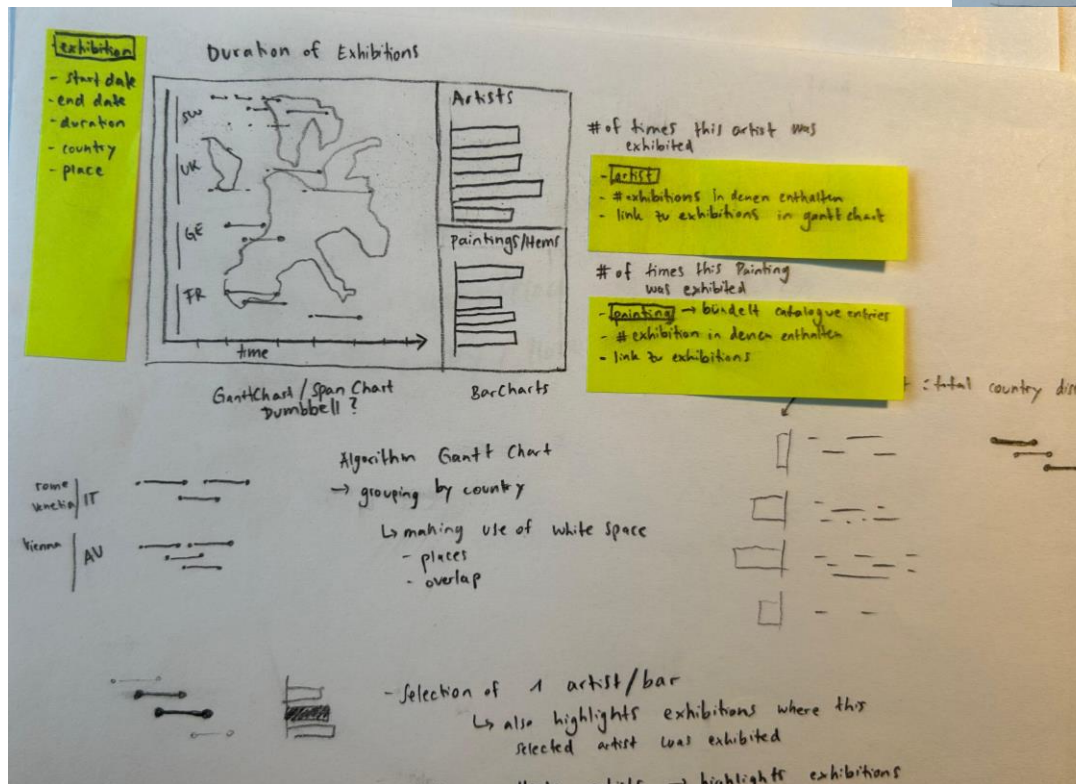 exhibition
- start date
- end date
- duration
- country
- place
Duration of Exhibitions
SW
UK
GE
FR
time
Artists
Paintings/Items
GanttChart / Span Chart
Dumbbell ?
BarCharts
# of times this artist was
exhibited
- artist
- # exhibitions in denen enthalten
- link zu exhibitions in ganttchart
# of times this Painting
was exhibited
- painting → bündelt catalogue entries
- # exhibition in denen enthalten
- link zu exhibitions
: total country
rome
venetia
IT
Vienna
AU
Algorithm Gantt Chart
→ grouping by country
↳ making use of white space
- places
- overlap
- Selection of 1 artist/bar
↳ also highlights exhibitions where this
selected artist was exhibited
→ highlights exhibitions